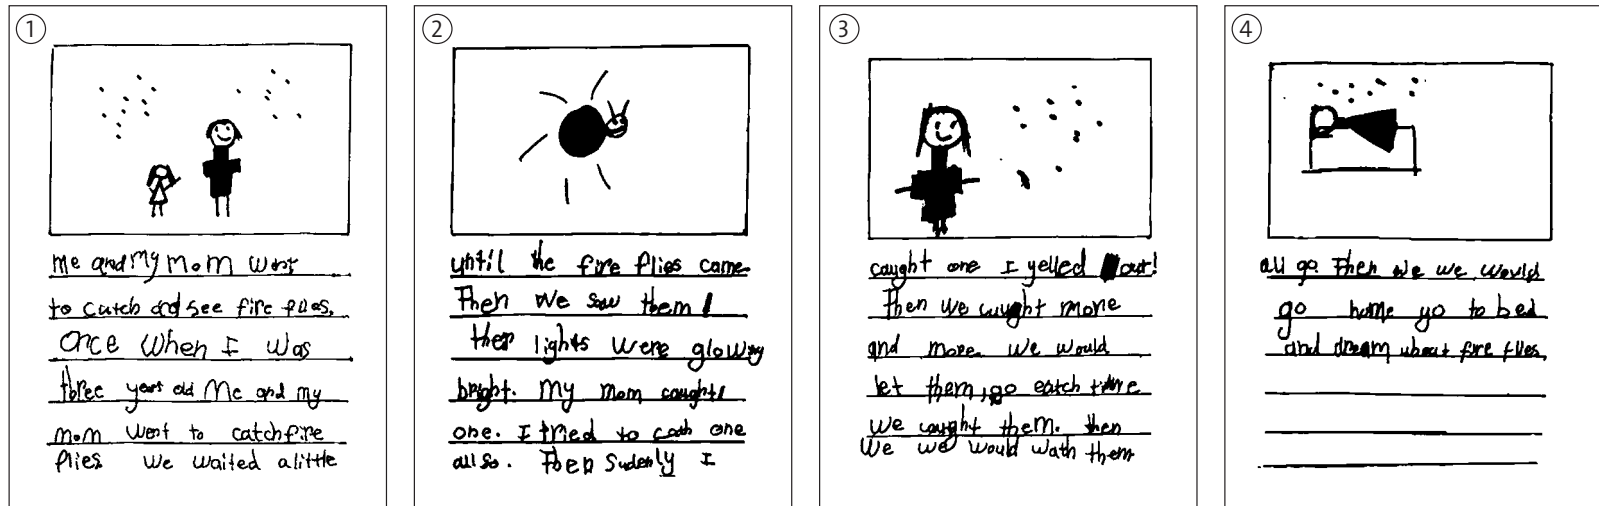 ①
me and my mom went
to catch and see fire flies.
once when I was
three years old Me and my
mom went to catch fire
flies we waited a little
②
until the fire flies came.
Then we saw them!
ther lights were glowing
bright. My mom caught
one. I tried to cath one
all so. Then sudenly I
③
caught one I yelled out!
Then we caught more
and more. we would
let them go eatch time
we caught them. then
We we would wath them
④
all go. Then we we would
go home go to bed
and dream about fire flies.